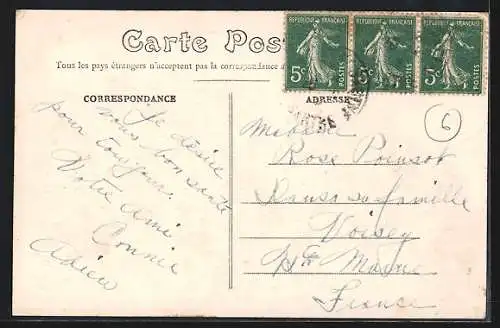 Carte Pos
Tous les pays étrangers n'acceptent pas la correspondance a
RÉPUBLIQUE FRANÇAISE
5c
POSTES
RÉPUBLIQUE FRANÇAISE
5c
POSTES
RÉPUBLIQUE FRANÇAISE
5c
POSTES
CORRESPONDANCE
Je désire
vous bon santé
pour toujours.
Votre Ami
Connie
Adieu
ADRESSE
6
Madame
Rose Poinsot
Dans sa famille
Voisey
Hte Marne
France